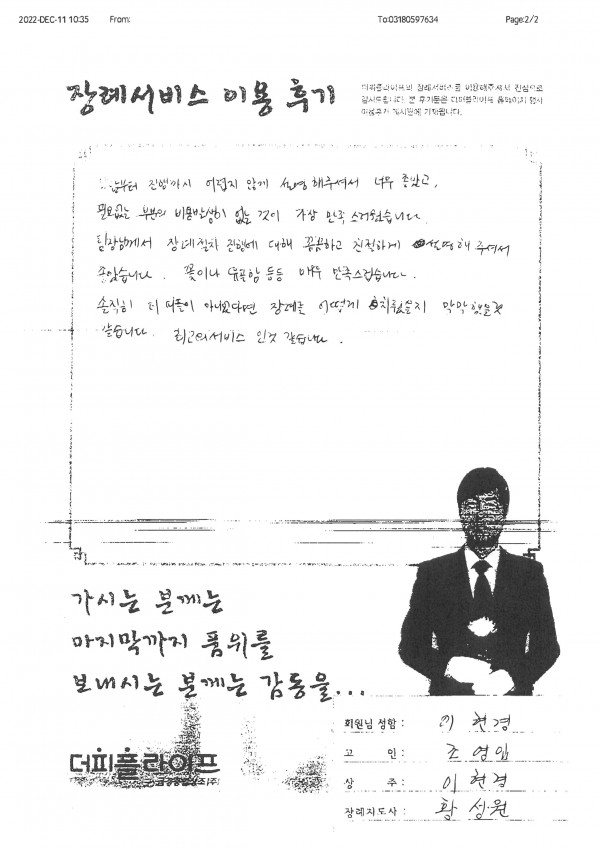 2022-DEC-11 10:35 From: To:03180597634 Page:2/2
장례서비스 이용 후기
더피플라이프의 장례서비스를 이용해주셔서 진심으로
감사드립니다. 본 후기물은 더피플라이프 홈페이지 행사
이용후기 게시판에 기재됩니다.
진행까지 어렵지 않게 설명해주셔서 너무 좋았고,
필요없는 부분의 비용발생이 없는 것이 가장 만족스러웠습니다.
팀장님께서 장례절차 진행에 대해 꼼꼼하고 친절하게 설명해 주셔서
좋았습니다. 꽃이나 유골함 등등 매우 만족스럽습니다.
솔직히 더 피플이 아니었다면 장례를 어떻게 치뤘을지 막막했을것
같습니다. 최고의서비스 인것 같습니다.
가시는 분께는
마지막까지 품위를
보내시는 분께는 감동을...
더피플라이프
회원님 성함 : 이 현경
고 인 : 조 영임
상 주 : 이 현경
장례지도사 : 황 성원